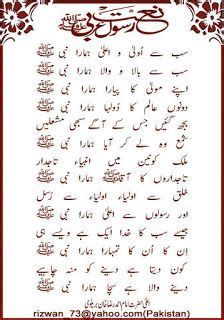 نعت رسول عربی ﷺ
سب سے اَولیٰ و اعلیٰ ہمارا نبی ﷺ
سب سے بالا و والا ہمارا نبی ﷺ
اپنے مولیٰ کا پیارا ہمارا نبی ﷺ
دونوں عالم کا دُولہا ہمارا نبی ﷺ
بجھ گئیں جس کے آگے سبھی مشعلیں
شمع وہ لے کر آیا ہمارا نبی ﷺ
ملک کونین میں انبیاء تاجدار
تاجداروں کا آقا ہمارا نبی ﷺ
خلق سے اولیاء اولیاء سے رُسل
اور رسولوں سے اعلیٰ ہمارا نبی ﷺ
جیسے سب کا خدا ایک ہے ویسے ہی
اِن کا اُن کا تمہارا ہمارا نبی ﷺ
کون دیتا ہے دینے کو منہ چاہیے
دینے والا ہے سچا ہمارا نبی ﷺ
اعلیٰ حضرت امام احمد رضا خان بریلوی
rizwan_73@yahoo.com(Pakistan)